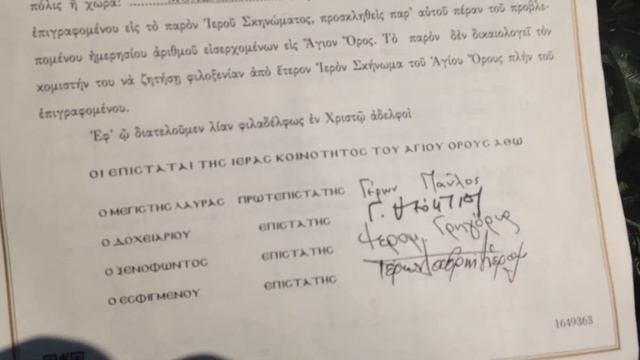 πόλις ἢ χώρα:
ἐπιγραφομένου εἰς τὸ παρὸν Ἱεροῦ Σκηνώματος, προσκληθεὶς παρ' αὐτοῦ πέραν τοῦ προβλε-
πομένου ἡμερησίου ἀριθμοῦ εἰσερχομένων εἰς Ἅγιον Ὄρος. Τὸ παρὸν δὲν δικαιολογεῖ τὸν
κομιστήν του νὰ ζητήσῃ φιλοξενίαν ἀπὸ ἕτερον Ἱερὸν Σκήνωμα τοῦ Ἁγίου Ὄρους πλὴν τοῦ
ἐπιγραφομένου.
Ἐφ' ᾧ διατελοῦμεν λίαν φιλαδέλφως ἐν Χριστῷ ἀδελφοὶ
ΟΙ ΕΠΙΣΤΑΤΑΙ ΤΗΣ ΙΕΡΑΣ ΚΟΙΝΟΤΗΤΟΣ ΤΟΥ ΑΓΙΟΥ ΟΡΟΥΣ ΑΘΩ
Ο ΜΕΓΙΣΤΗΣ ΛΑΥΡΑΣ ΠΡΩΤΕΠΙΣΤΑΤΗΣ Γέρων Παῦλος
Ο ΔΟΧΕΙΑΡΙΟΥ ΕΠΙΣΤΑΤΗΣ Γ.
Ο ΞΕΝΟΦΩΝΤΟΣ ΕΠΙΣΤΑΤΗΣ Γρηγόρις
Ο ΕΣΦΙΓΜΕΝΟΥ ΕΠΙΣΤΑΤΗΣ Γέρων
1649363